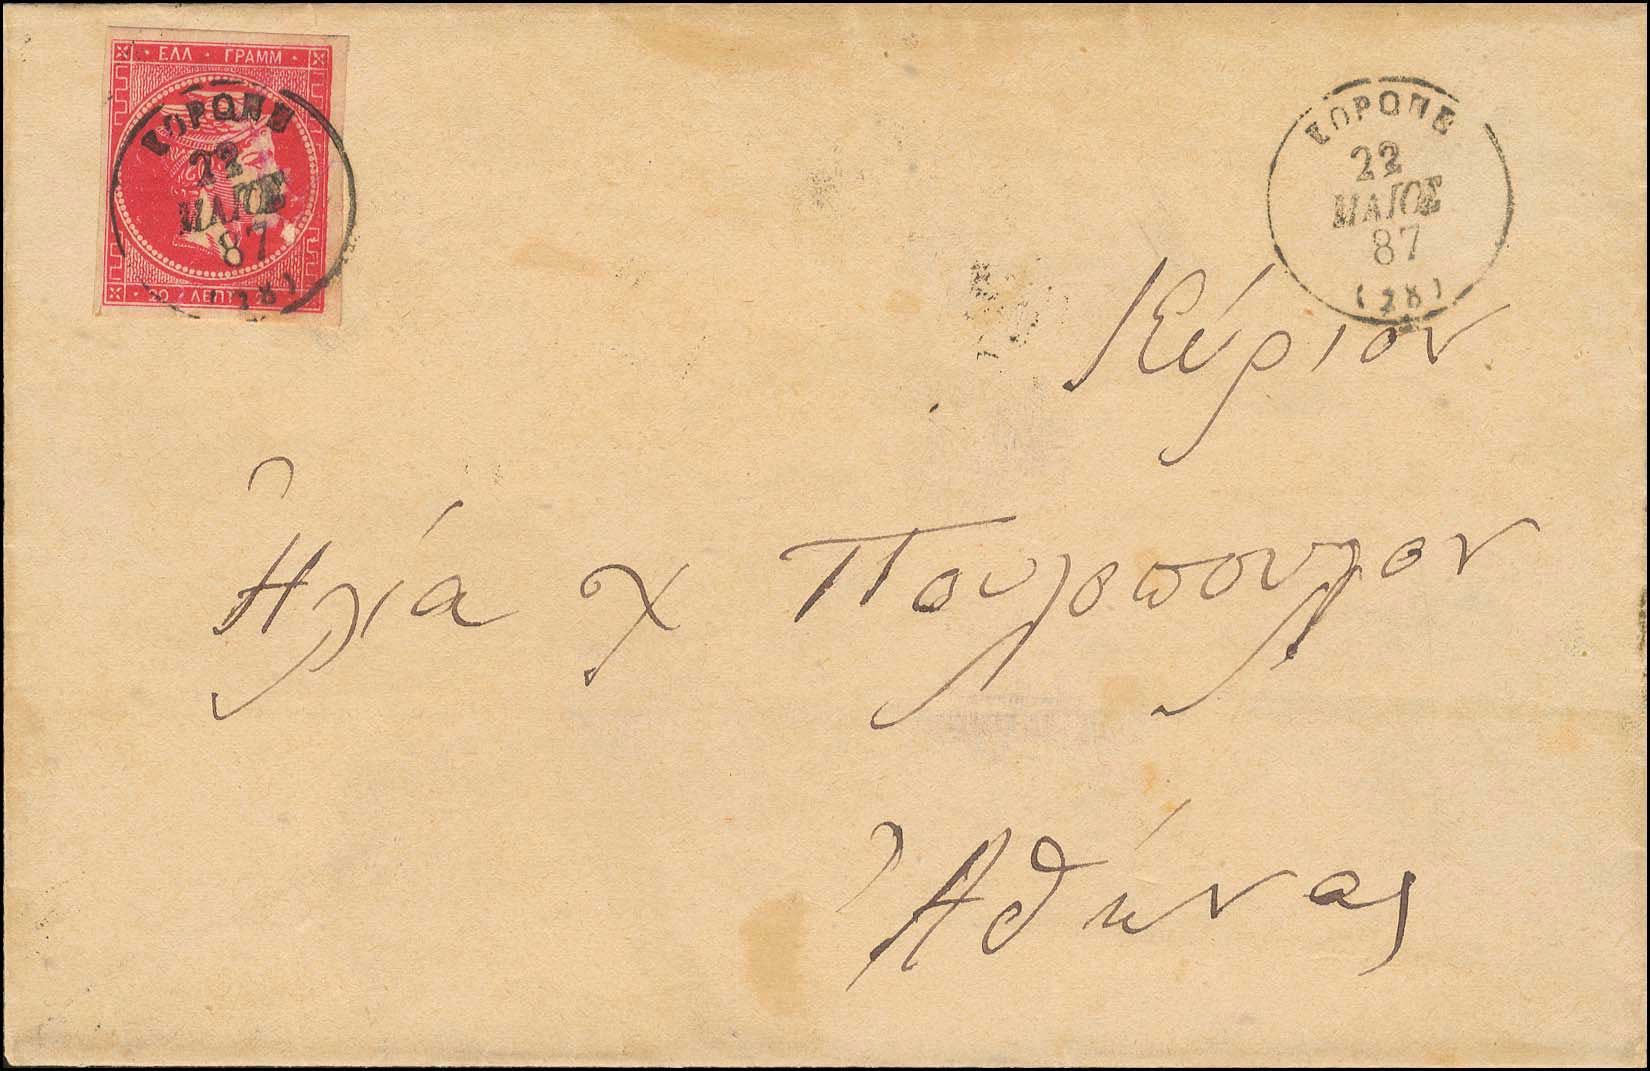 ΕΛΛ · ΓΡΑΜΜ
20 ΛΕΠΤ
ΚΟΡΩΝΗ
22
ΜΑΙΟΣ
87
(28)
ΚΟΡΩΝΗ
22
ΜΑΙΟΣ
87
(28)
Κύριον
Ἠλία χ Πουλοπουλον
Ἀθήνας